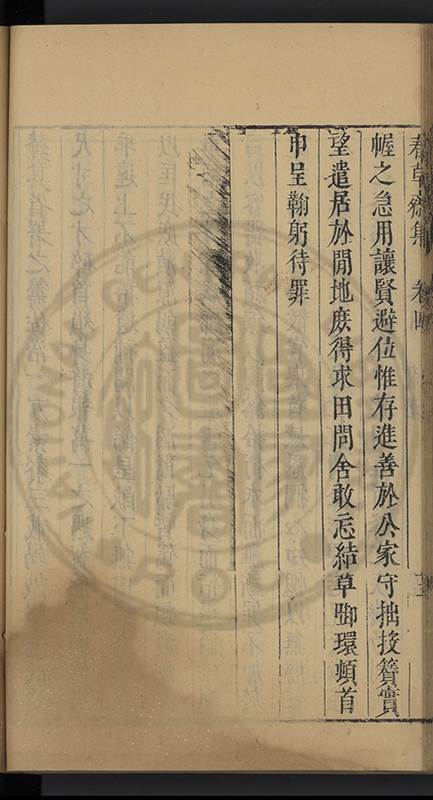 春草齋集　卷四
幄之急用讓賢避位惟存進善於公家守拙投簪實
望遣居於閒地庶得求田問舍敢忘結草啣環頓首
申呈鞠躬待罪